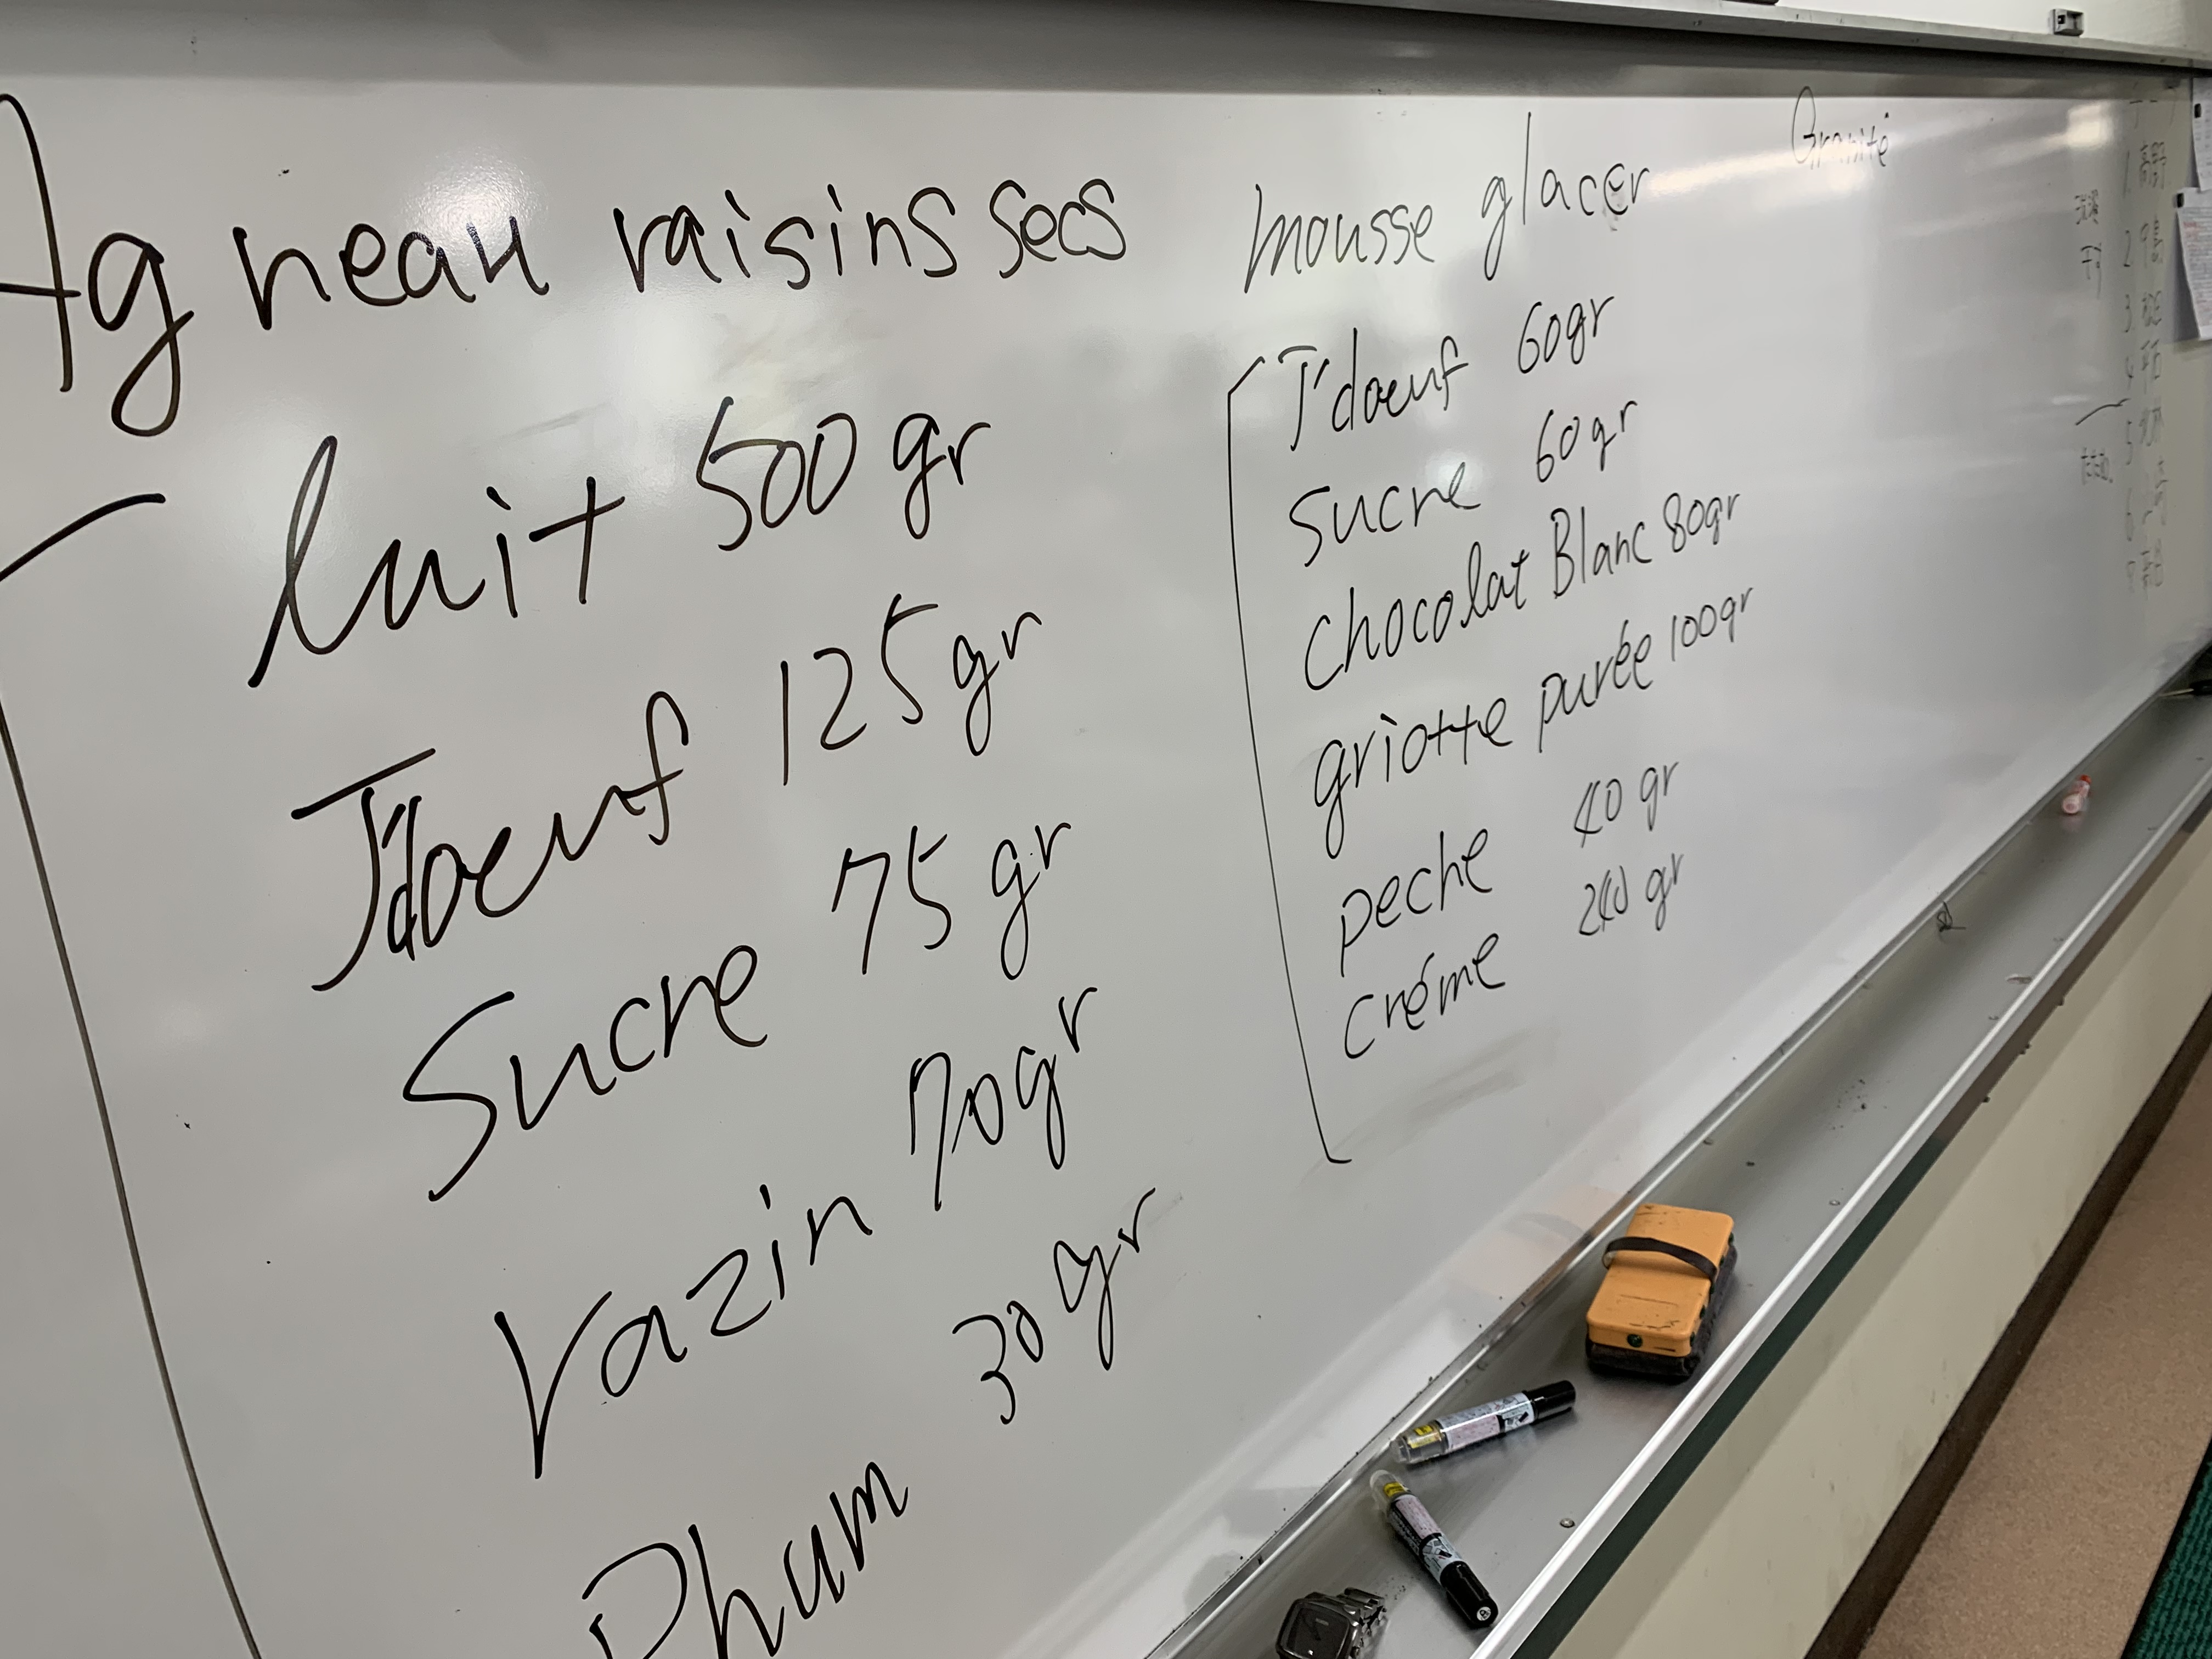 Agneau raisins secs
lait 500gr
J'doeuf 125gr
Sucre 75gr
razin 70gr
Rhum 30gr
mousse glacer
J'doeuf 60gr
sucre 60gr
chocolat Blanc 80gr
griotte purée 100gr
peche 40gr
créme 240gr
Granité
1
2
3
4
5
6
7